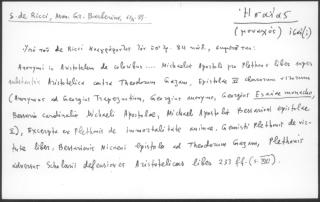 S. de Ricci, Mon. Gr. Barberini,
Ἡσαΐας
(μοναχός)
Anonymi in Aristotelem de coloribus.... Michaelis Apostoli pro Plethone liber super
substantia Aristotelica contra Theodorum Gazam, Epistolae II clarorum virorum
(Anonymus ad Georgium Trapezuntium, Georgius anonymo, Georgius Esaiae monacho,
Bessario cardinalis Michaeli Apostolae, Michaelis Apostolii Bessarioni epistolae
II), Excerpta ex Plethonis de immortalitate animae, Gemisti Plethonis de vir-
tute liber, Bessarionis Nicaeni epistola ad Theodorum Gazam, Plethonis
adversus Scholarii defensiones Aristotelicas liber 237 ff.